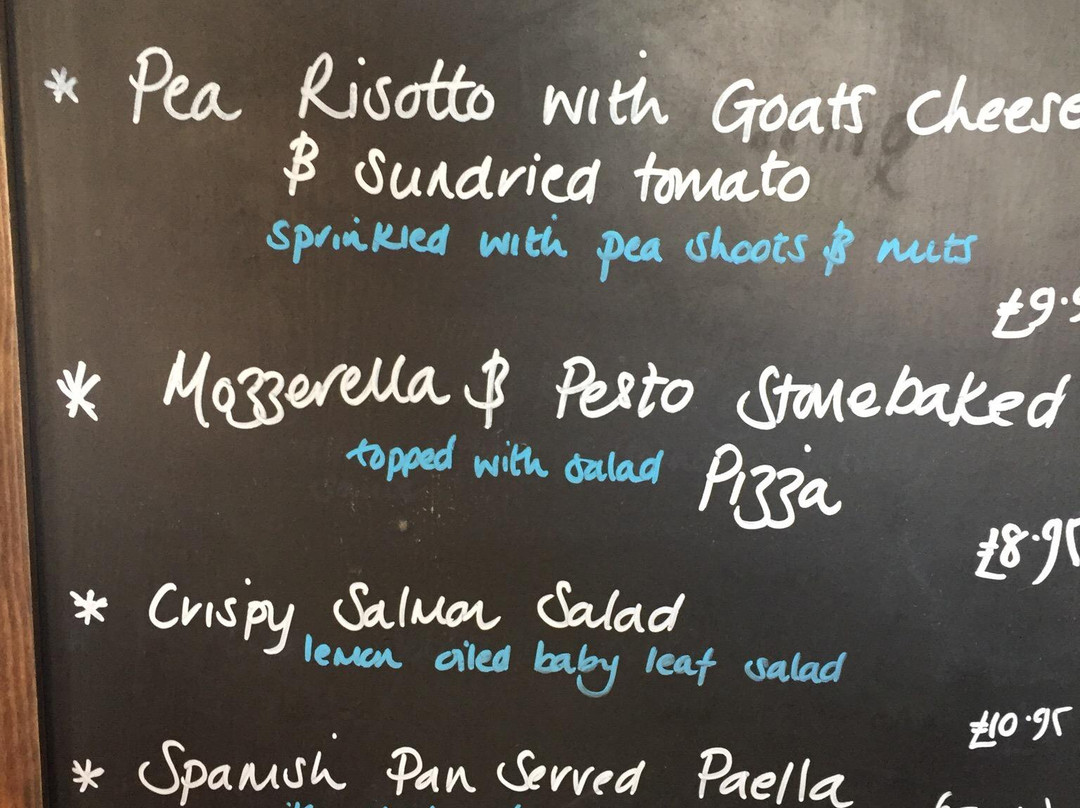 * Pea Risotto with Goats Cheese
& Sundried tomato
sprinkled with pea shoots & nuts
£9.9
* Mozzerella & Pesto Stonebaked
topped with salad Pizza
£8.95
* Crispy Salmon Salad
lemon oiled baby leaf salad
£10.95
* Spanish Pan Served Paella